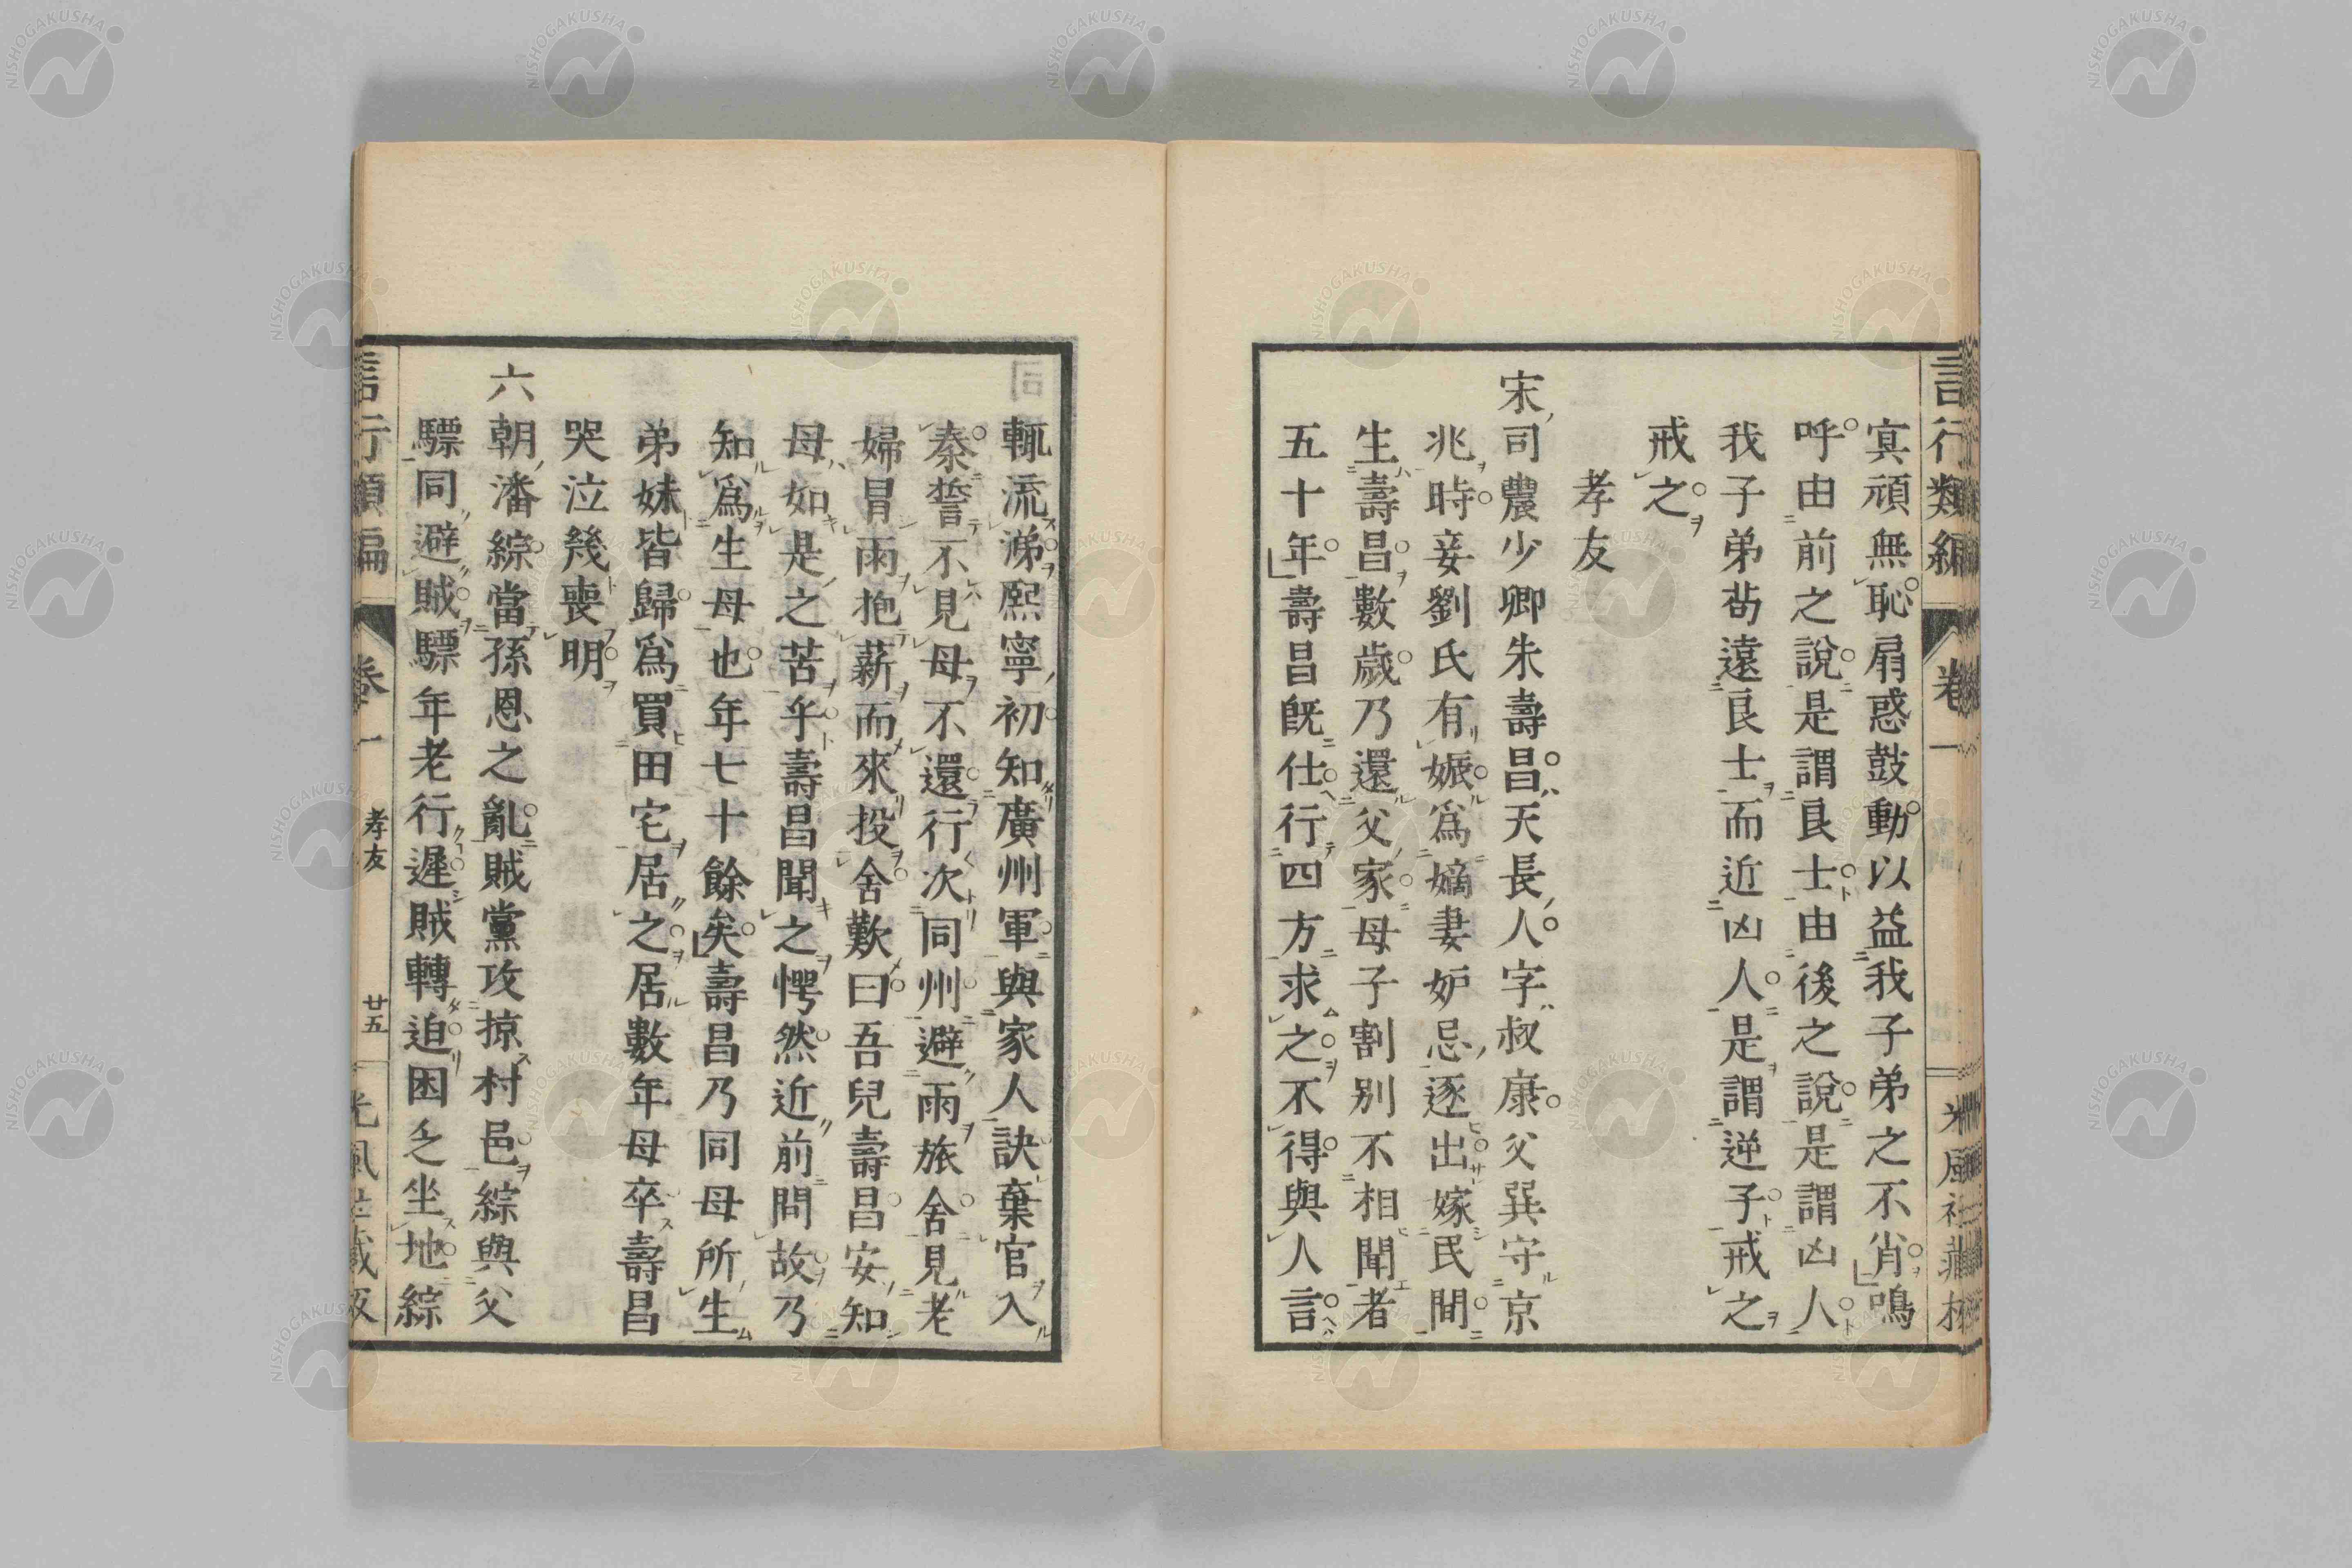 寘頑無恥扇惑鼓動以益我子弟之不肖鳴
呼由前之説是謂良士由後之説是謂凶人
我子弟苟遠良士而近凶人是謂逆子戒之
戒之
孝友
宋司農少卿朱壽昌天長人字叔康父巽守京
兆時妾劉氏有娠爲嫡妻妒忌逐出嫁民間
生壽昌數歲乃還父家母子割別不相聞者
五十年壽昌既仕行四方求之不得與人言
輒流涕熙寧初知廣州軍與家人訣棄官入
秦誓不見母不還行次同州避雨旅舍見老
婦冒雨抱薪而來投舍歎曰吾兒壽昌安知
母如是之苦乎壽昌聞之愕然近前問故乃
知爲生母也年七十餘矣壽昌乃同母所生
弟妹皆歸爲買田宅居之居數年母卒壽昌
哭泣幾喪明
六朝潘綜當孫恩之亂賊黨攻掠村邑綜與父
驃同避賊驃年老行遲賊轉迫困乏坐地綜
言行類編 卷一 孝友 廿五
言行類編 卷一
NISHOGAKUSHA